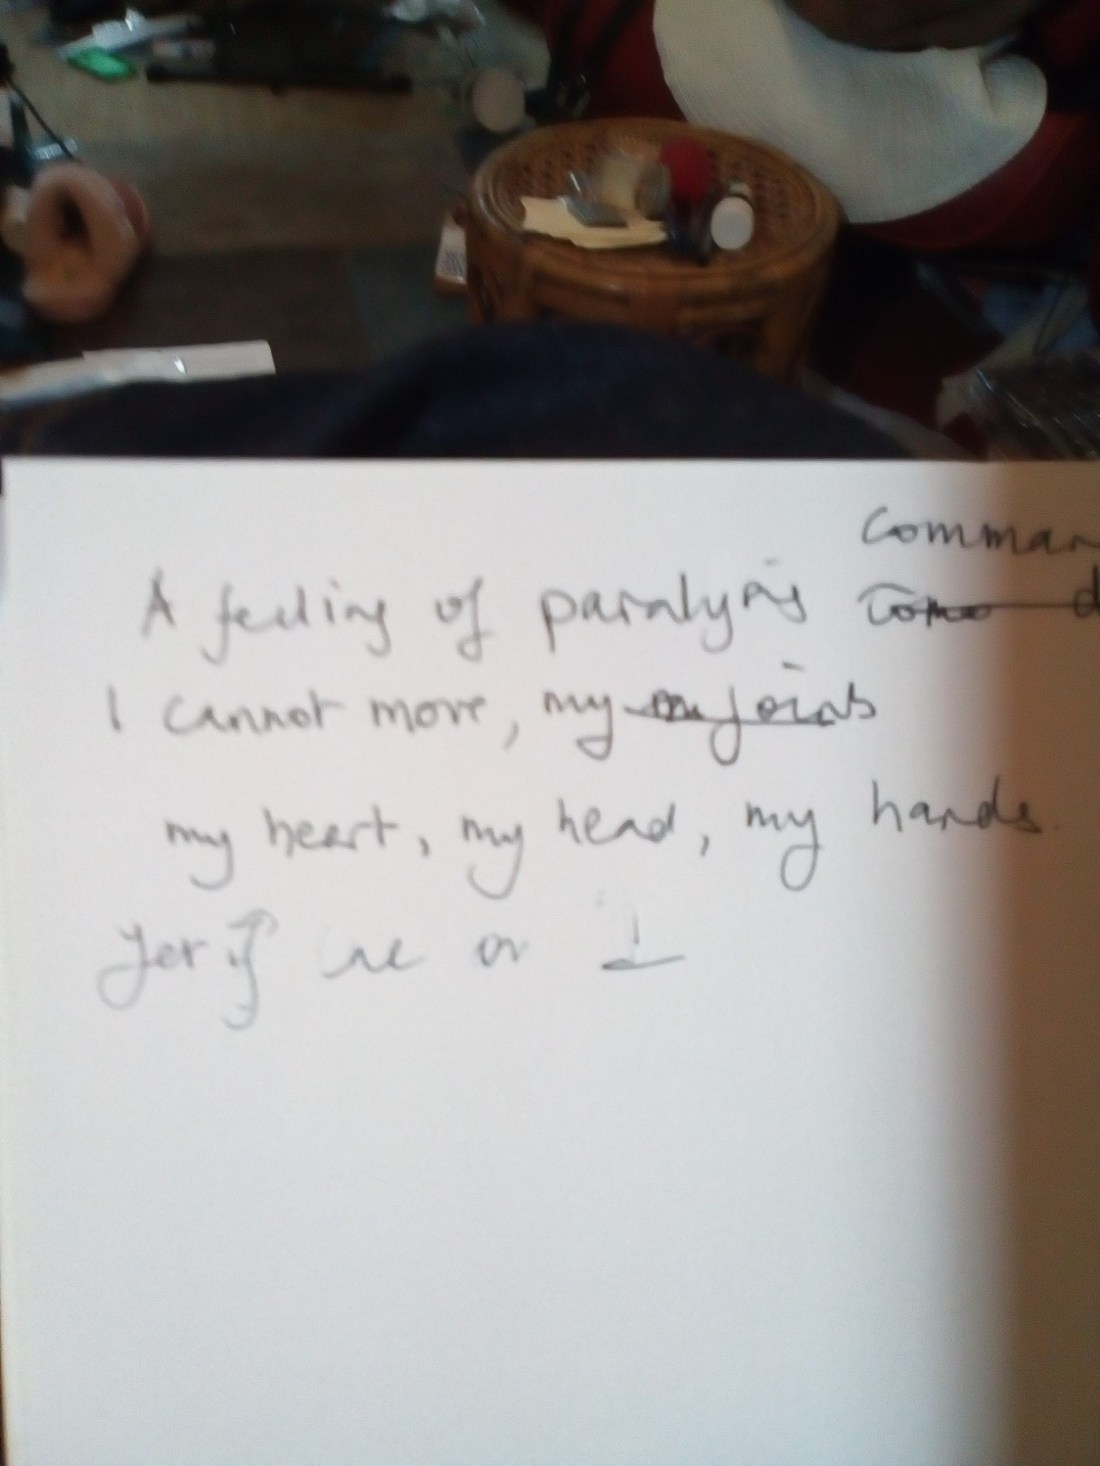 Comman
A feeling of paralysis
I cannot move, my joints
my heart, my head, my hands.
Yet if we or I